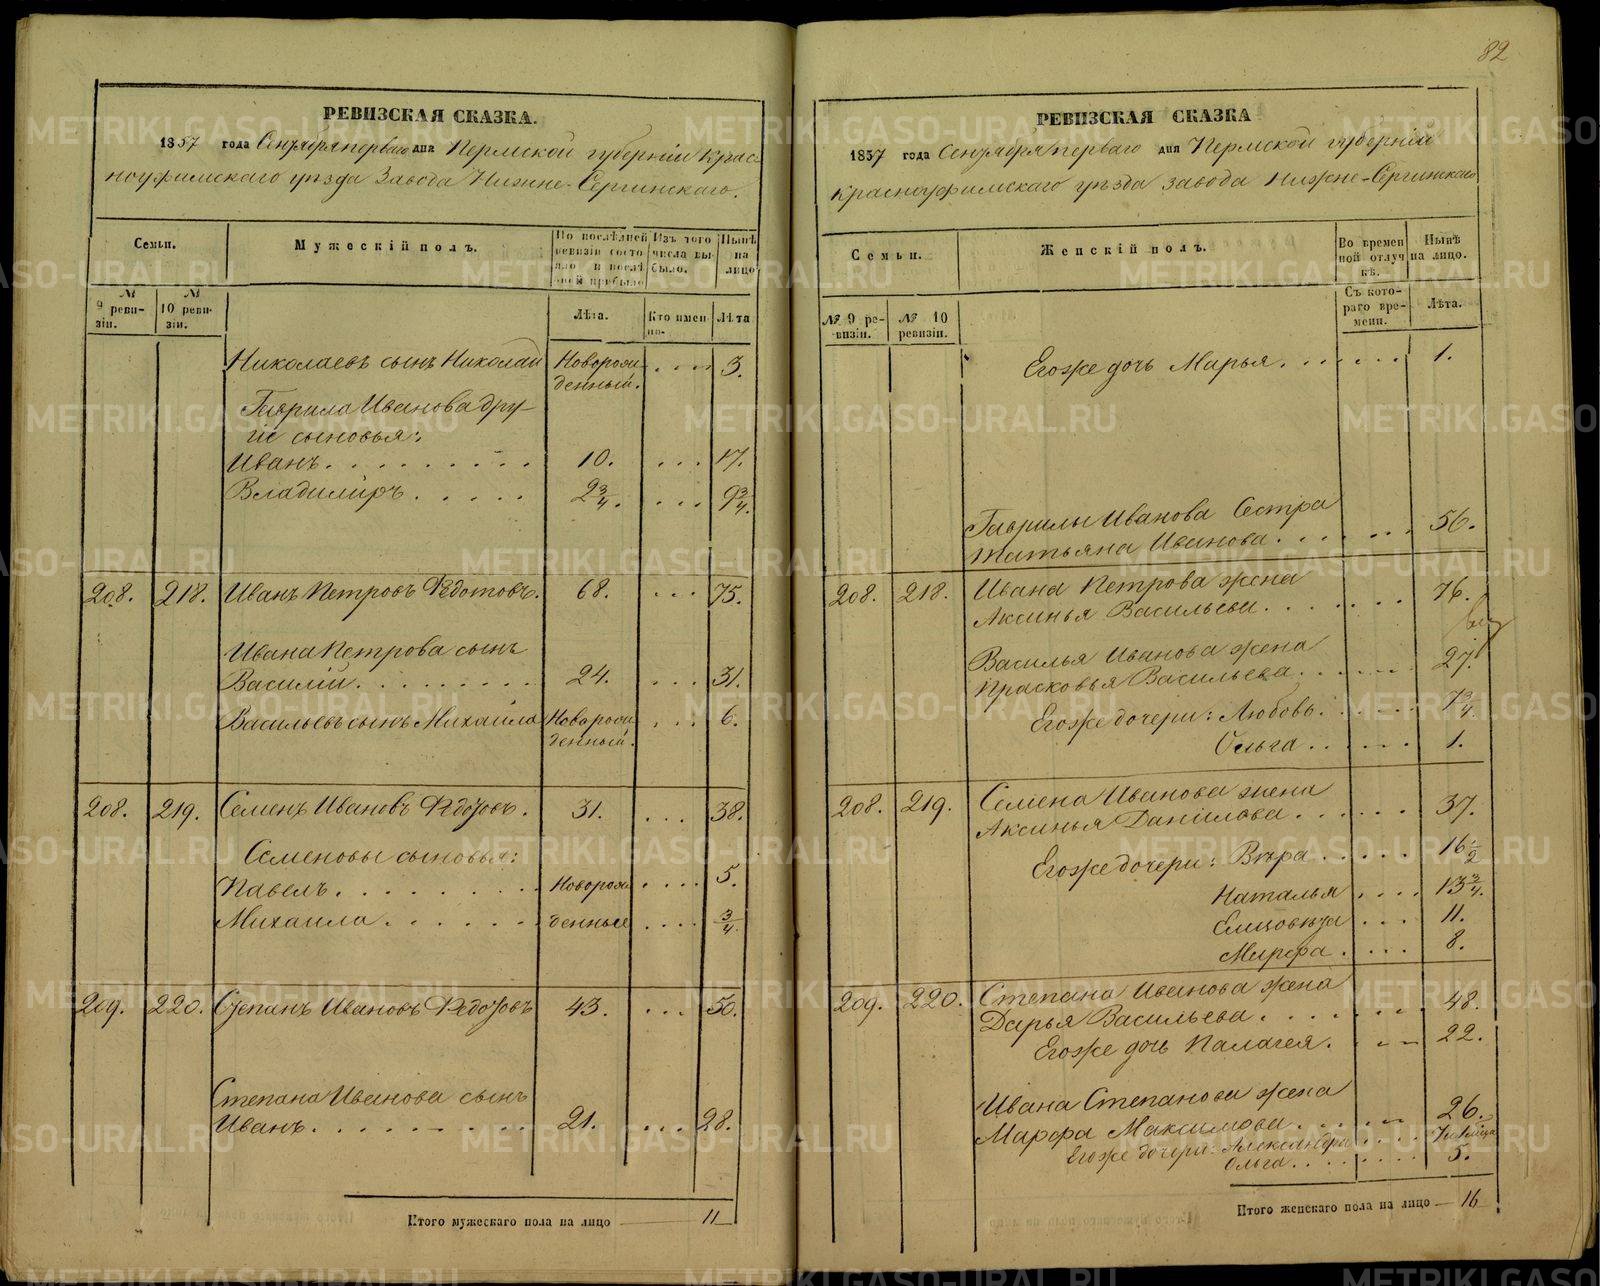 82
РЕВИЗСКАЯ СКАЗКА.
1857 года Сентября перваго дня Пермской губерніи Крас-
ноуфимскаго уѣзда Завода Нижне-Сергинскаго.
Семьи.
Мужескій полъ.
По послѣдней ревизіи состояло и послѣ оной прибыло
Изъ того числа выбыло.
Нынѣ на лицо
№ 9 ревизіи.
№ 10 ревизіи.
Лѣта.
Кто именно.
Лѣта
Николаевъ сынъ Николай Новорож- .... 3.
денный.
Гаврила Иванова дру-
гіе сыновья:
Иванъ. 10. ... 17.
Владиміръ. 2 3/4. ... 9 3/4.
208. 218. Иванъ Петровъ Ѳедотовъ. 68. ... 75.
Ивана Петрова сынъ
Василій. 24. ... 31.
Васильевъ сынъ Михайла Новорож- ... 6.
денный.
208. 219. Семенъ Ивановъ Ѳедотовъ. 31. ... 38.
Семеновы сыновья:
Павелъ. Новорож- .... 5.
Михаила. денные .... 3/4.
209. 220. Степанъ Ивановъ Ѳедотовъ 43. ... 50.
Степана Иванова сынъ
Иванъ. 21. ... 28.
Итого мужескаго пола на лицо 11
РЕВИЗСКАЯ СКАЗКА
1857 года Сентября перваго дня Пермской губерніи
Красноуфимскаго уѣзда завода Нижне-Сергинскаго
Семьи.
Женскій полъ.
Во временной отлучкѣ.
Нынѣ на лицо.
№ 9 ревизіи.
№ 10 ревизіи.
Съ котораго времени.
Лѣта.
Егоже дочь Марья. 1.
Гаврилы Иванова Сестра
Татьяна Иванова. 56.
208. 218. Ивана Петрова жена
Аксинья Васильева. 76.
Василья Иванова жена
Прасковья Васильева. 27.
Егоже дочери: Любовь. 7 3/4.
Ольга. 1.
208. 219. Семена Иванова жена
Аксинья Данилова. 37.
Егоже дочери: Вѣра. 16 1/2
Наталья 13 3/4.
Елисовѣта 11.
Марфа. 8.
209. 220. Степана Иванова жена
Дарья Васильева. 48.
Егоже дочь Палагея. 22.
Ивана Степанова жена
Марфа Максимова. 26.
Егоже дочери: Александра
Ольга. 5.
Итого женскаго пола на лицо — 16
METRIKI.GASO-URAL.RU